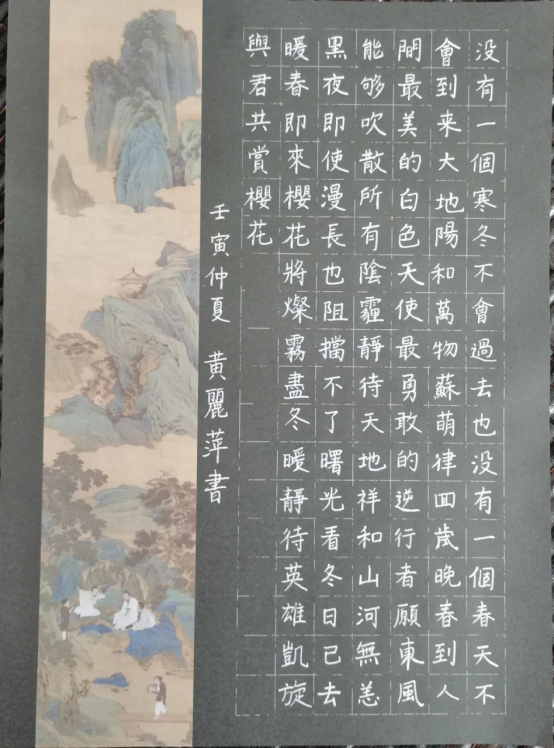 没有一個寒冬不會過去也没有一個春天不
會到来大地陽和萬物蘇萌律回歲晚春到人
間最美的白色天使最勇敢的逆行者願東風
能够吹散所有陰霾靜待天地祥和山河無恙
黑夜即使漫長也阻擋不了曙光看冬日已去
暖春即來櫻花將燦霧盡冬暖靜待英雄凱旋
與君共賞櫻花
壬寅仲夏 黄麗萍書